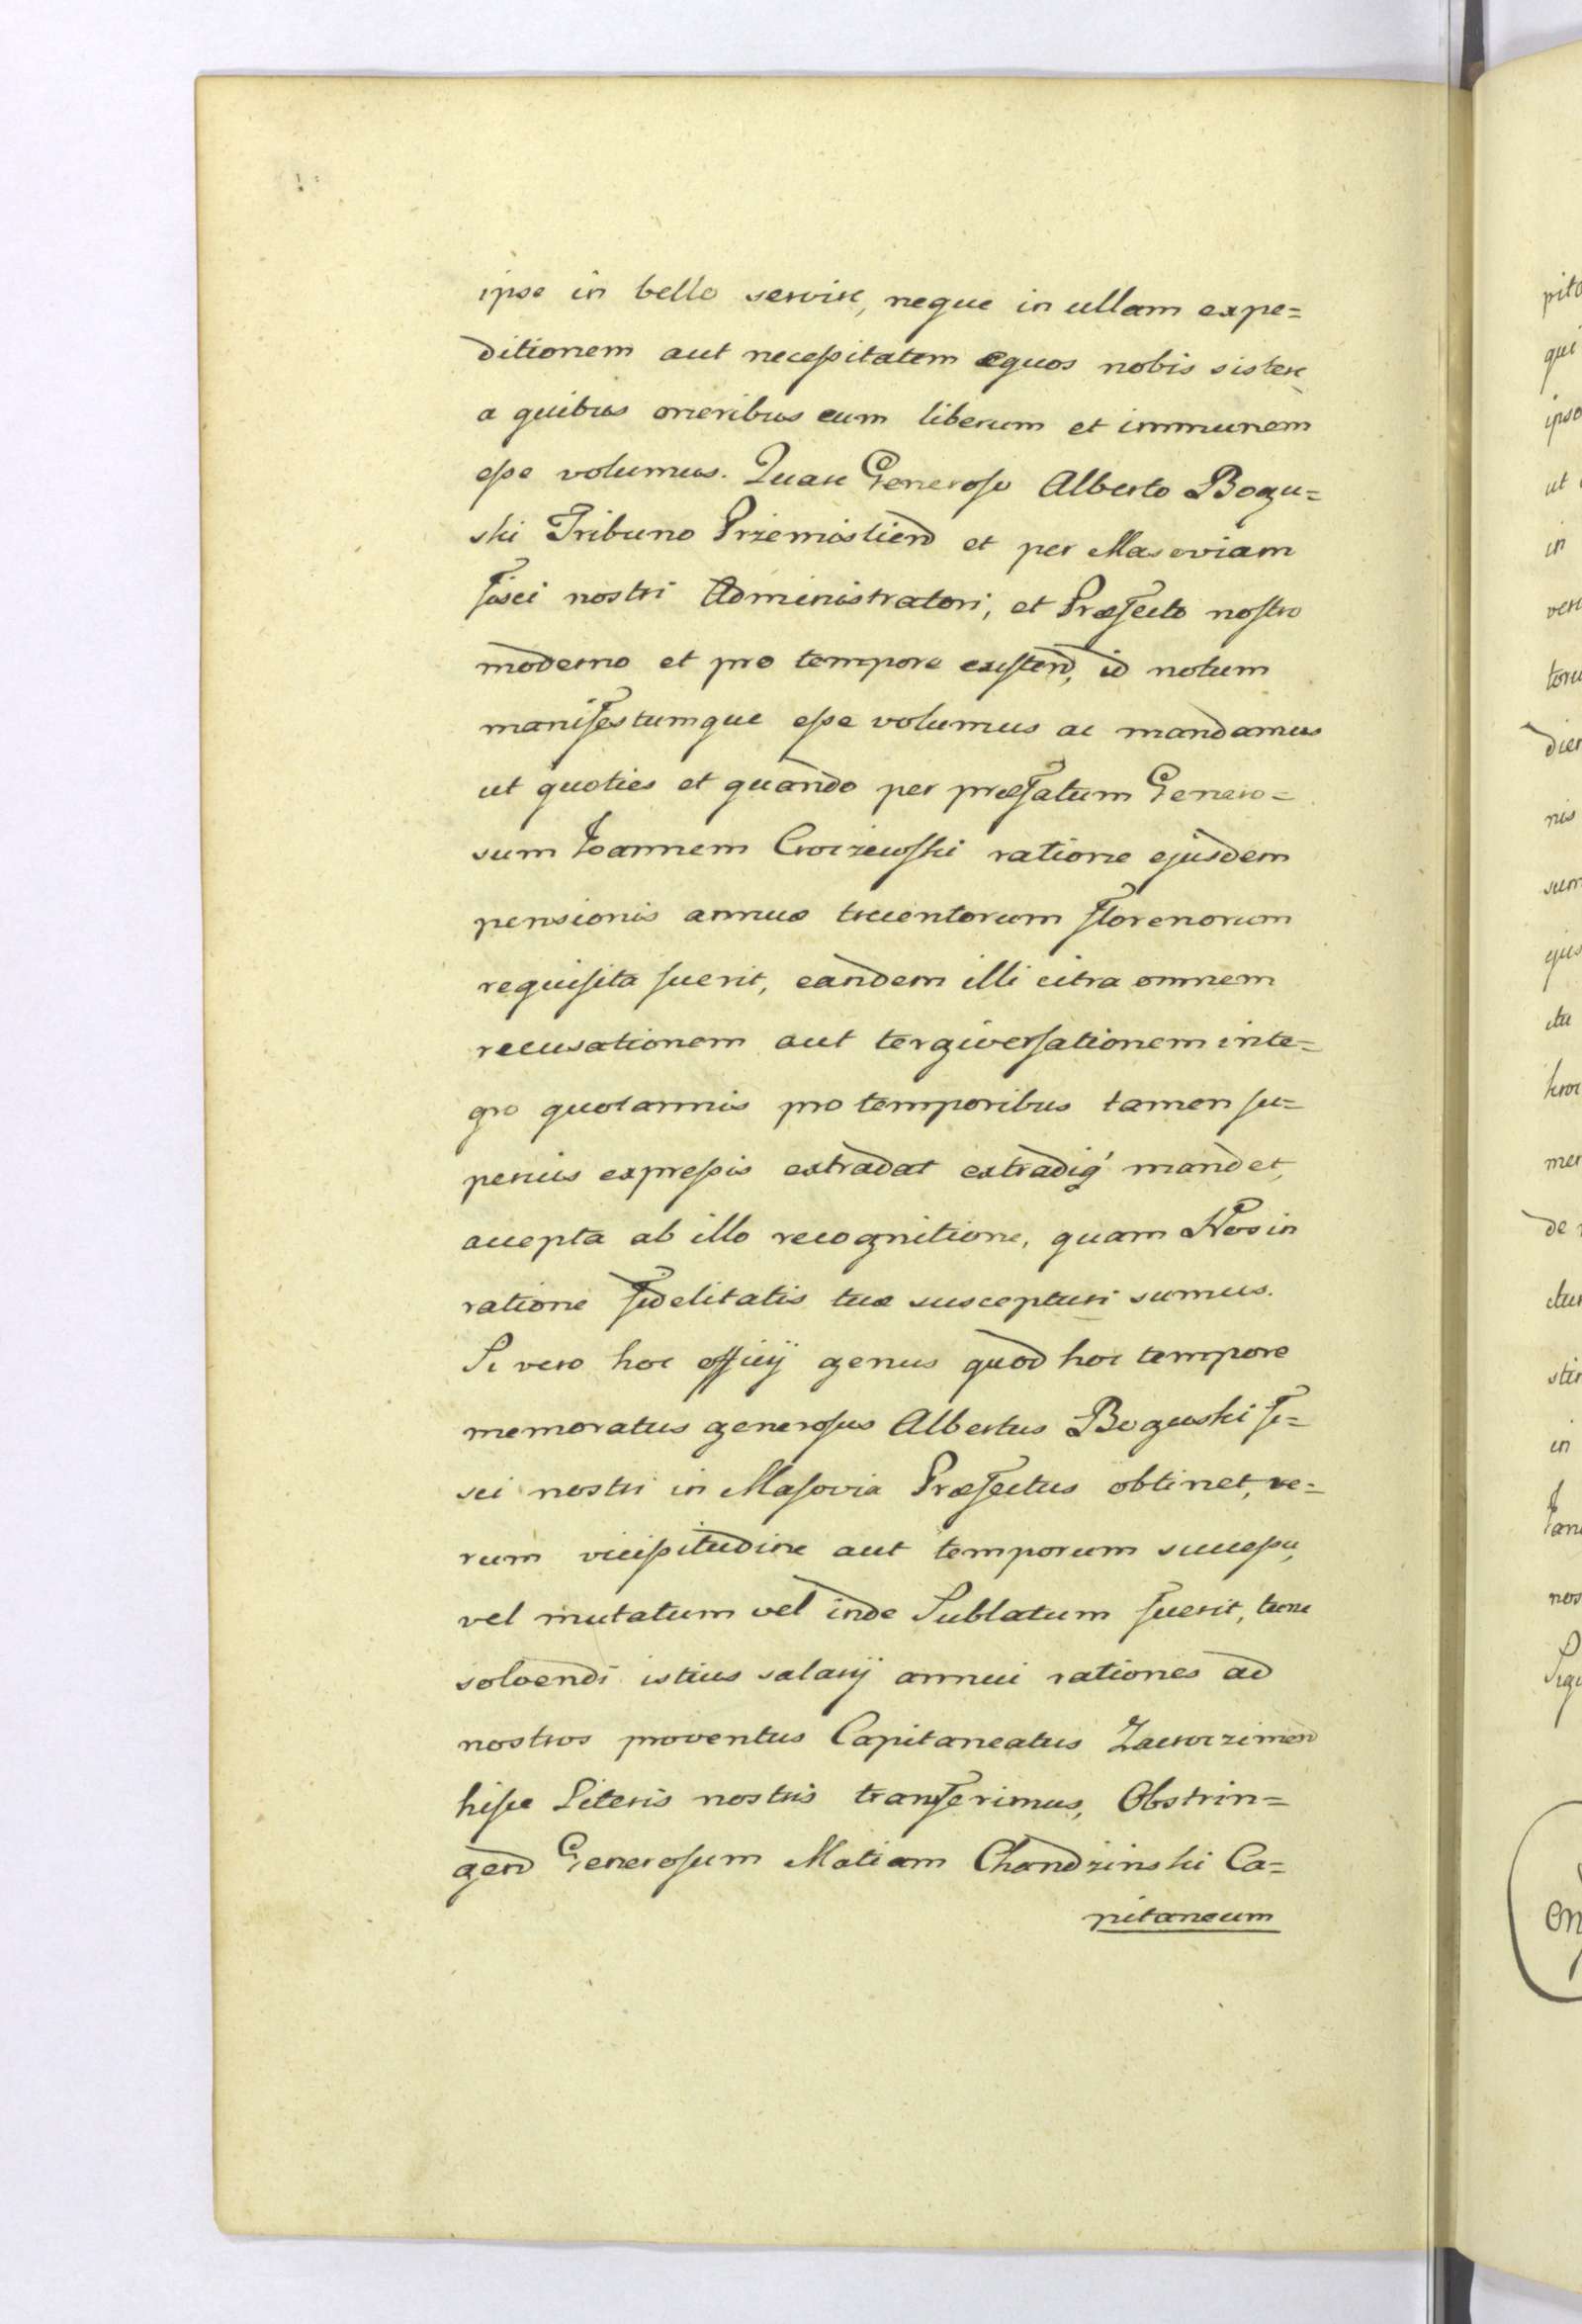 ipse in bello servire, neque in ullam expe=
ditionem aut necessitatem equos nobis sistere
a quibus oneribus eum liberum et immunem
esse volumus. Quare Generoso Alberto Bogu=
ski Tribuno Przemislien et per Masoviam
fisci nostri Administratori, et Præfecto nostro
moderno et pro tempore existen, id notum
manifestumque esse volumus ac mandamus
ut quoties et quando per præfatum Genero=
sum Ioannem Crocżewski ratione ejusdem
pensionis annuæ trecentorum florenorum
requisita fuerit, eandem illi citra omnem
recusationem aut tergiversationem inte=
gro quotannis pro temporibus tamen su=
perius expressis extradat extradiq' mandet,
accepta ab illo recognitione, quam Nos in
ratione fidelitatis tuæ suscepturi sumus.
Si vero hoc officij genus quod hoc tempore
memoratus generosus Albertus Boguski fi=
sci nostri in Masovia Præfectus obtinet, re=
rum vicissitudine aut temporum successu,
vel mutatum vel inde Sublatum fuerit, tunc
solvendi istius salarij annui rationes ad
nostros proventus Capitaneatus Zacroczimen
hisce Literis nostris transferimus, Obstrin=
gen Generosum Matiam Chondzinski Ca=
pitaneum